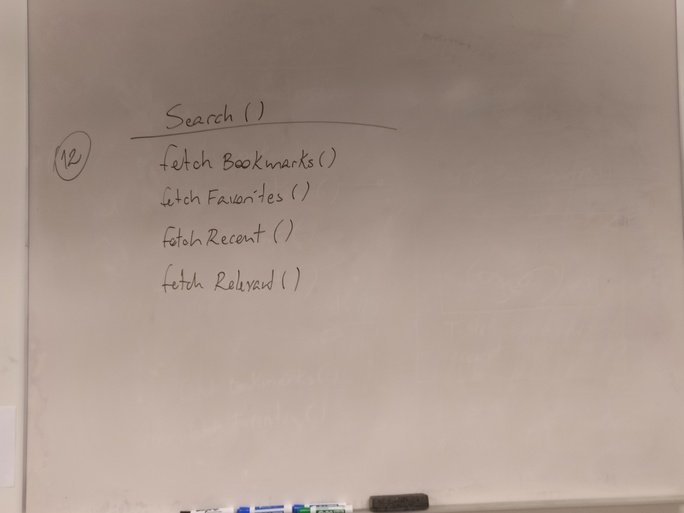 Search ()
12
fetch Bookmarks ()
fetch Favorites ()
fetch Recent ()
fetch Relevant ()